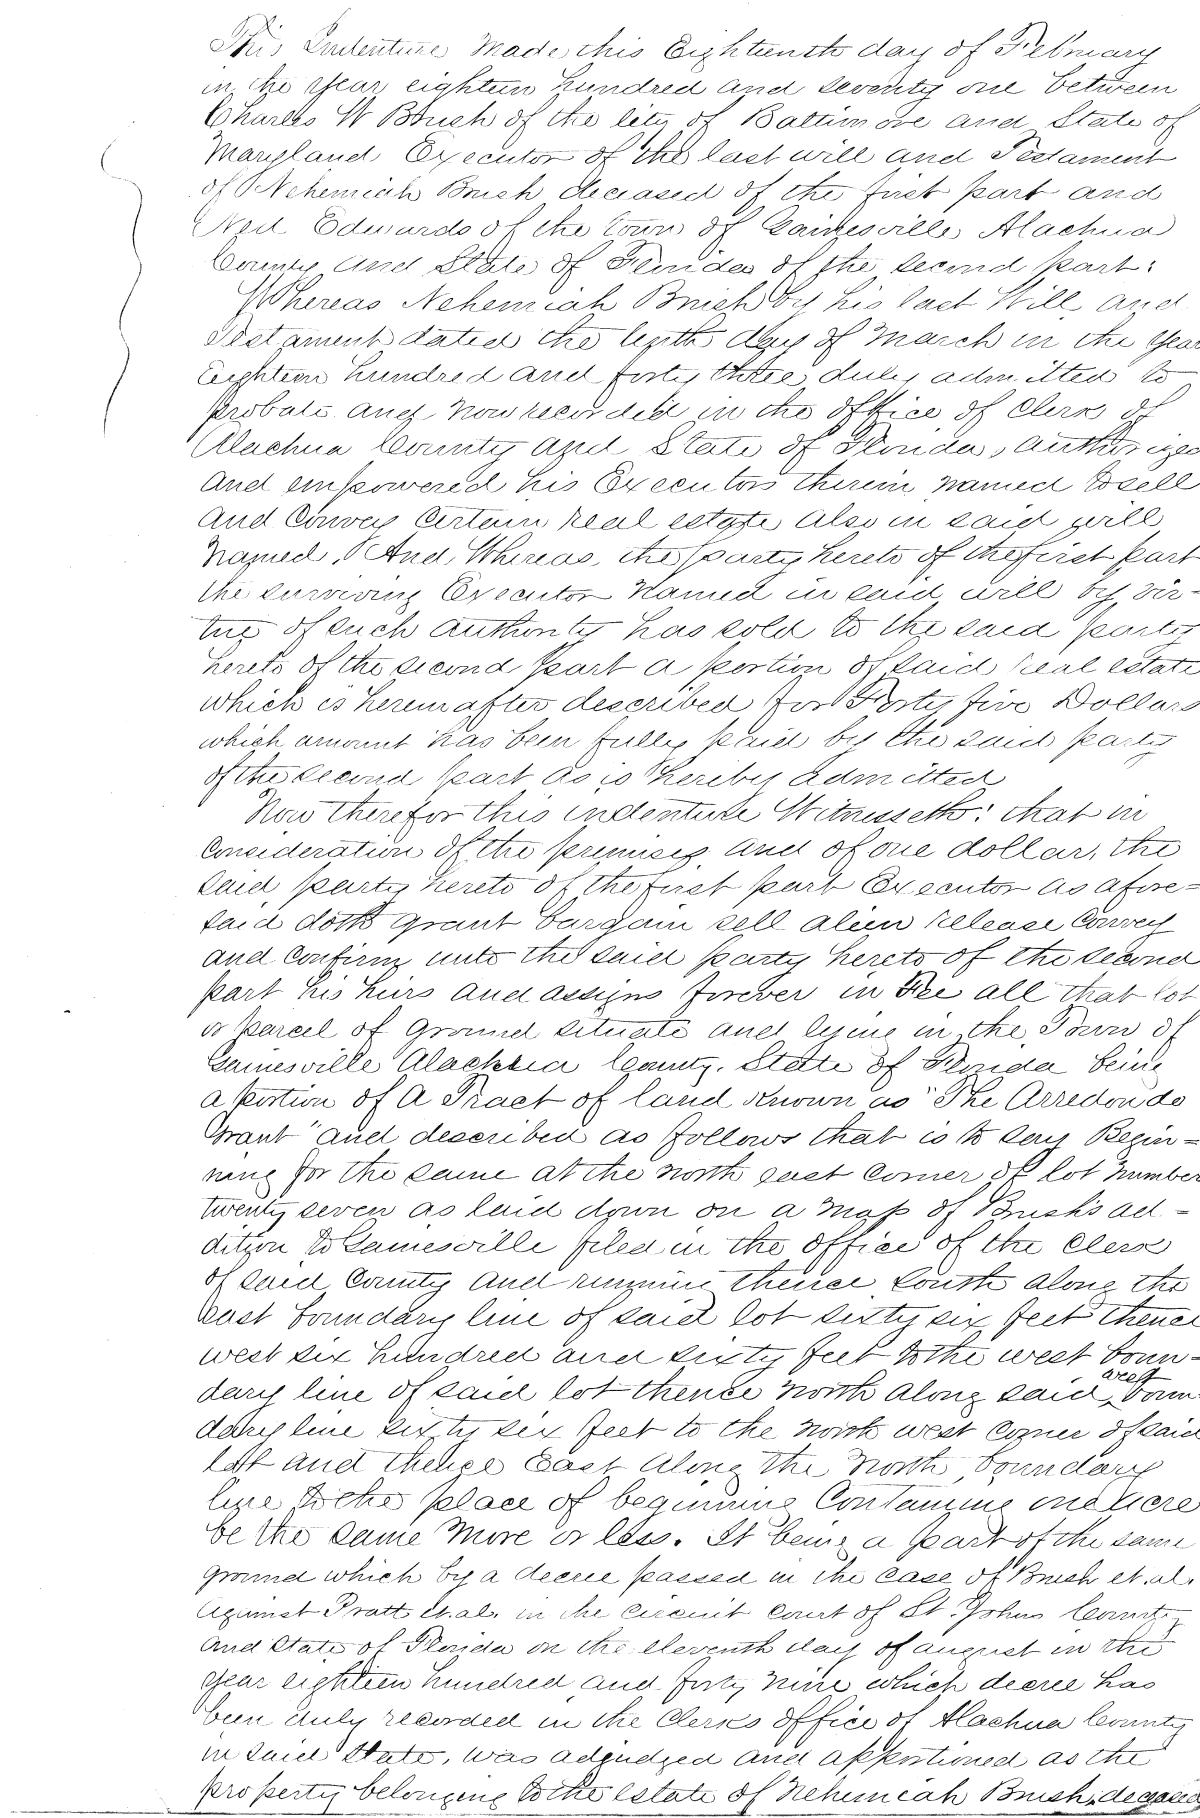 This Indenture Made this Eighteenth day of February
in the year eighteen hundred and seventy one between
Charles W Brush of the City of Baltimore and State of
Maryland Executor of the last will and Testament
of Nehemiah Brush deceased of the first part and
Ned Edwards of the town of Gainesville Alachua
County and State of Florida of the second part:
Whereas Nehemiah Brush by his last Will and
Testament dated the tenth day of March in the year
Eighteen hundred and forty three duly admitted to
probate and now recorded in the office of Clerk of
Alachua County and State of Florida, authorized
and empowered his Executors therein named to sell
and Convey Certain real estate also in said will
named. And Whereas, the party hereto of the first part
the surviving Executor named in said will by vir-
tue of such authority has sold to the said party
hereto of the second part a portion of said real estate
which is hereinafter described for Forty five Dollars
which amount has been fully paid by the said party
of the second part as is hereby admitted
Now therefor this indenture Witnesseth: that in
consideration of the premises and of one dollar, the
said party hereto of the first part Executor as afore=
said doth grant bargain sell alien release convey
and confirm unto the said party hereto of the second
part his heirs and assigns forever in Fee all that lot
or parcel of ground situate and lying in the Town of
Gainesville Alachua County. State of Florida being
a portion of a Tract of land known as "The Arredondo
Grant" and described as follows that is to say Begin=
ning for the same at the north east corner of lot number
twenty seven as laid down on a map of Brush's ad-
dition to Gainesville filed in the office of the Clerk
of said County and running thence south along the
east boundary line of said lot sixty six feet thence
west six hundred and sixty feet to the west boun-
dary line of said lot thence north along said west boun-
dary line sixty six feet to the north west corner of said
lot and thence East along the North boundary
line to the place of beginning Containing one acre
be the same more or less. It being a part of the same
ground which by a decree passed in the case of Brush et. al.
against Pratt et. al. in the circuit court of St. Johns County
and State of Florida on the eleventh day of august in the
year eighteen hundred and forty nine which decree has
been duly recorded in the Clerks office of Alachua County
in said State, was adjudged and apportioned as the
property belonging to the estate of Nehemiah Brush, deceased